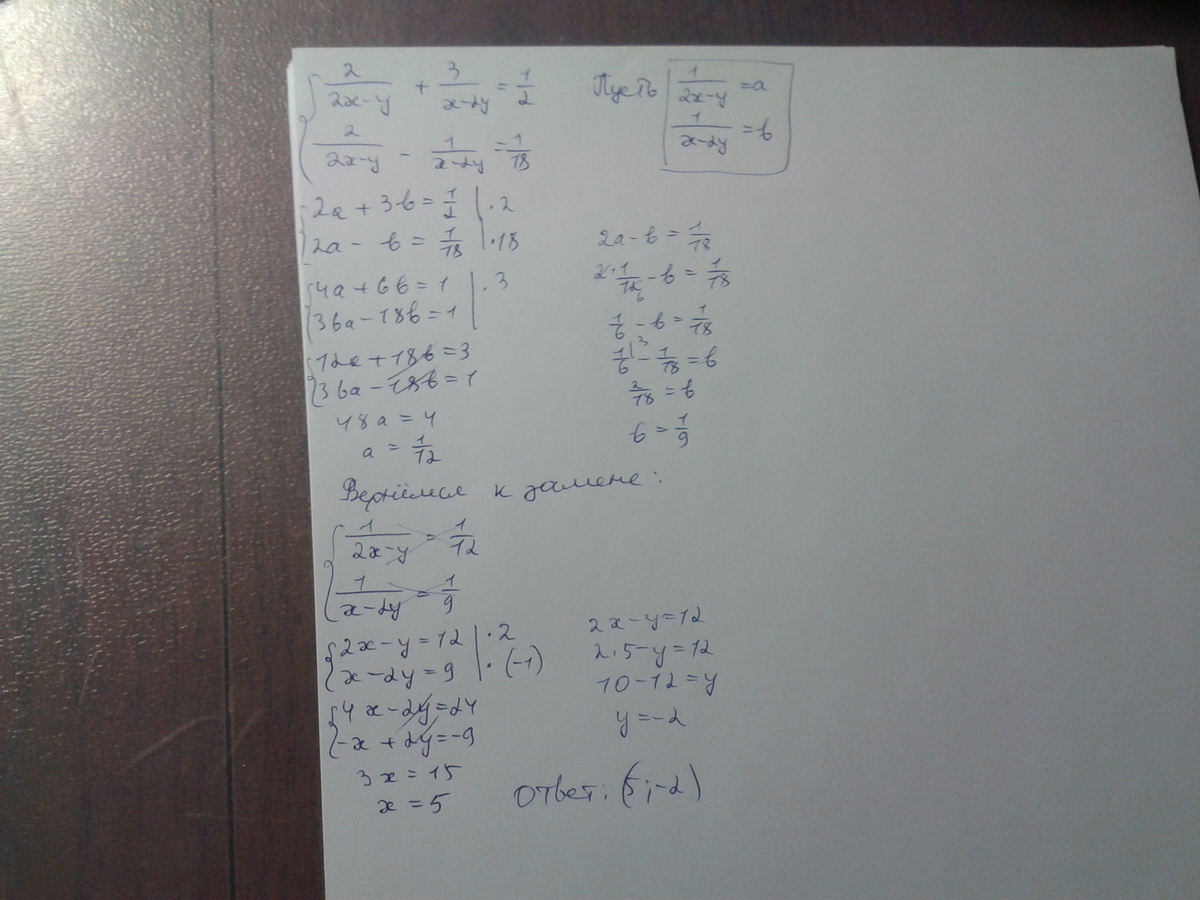 2/(2x-y) + 3/(x-2y) = 1/2
2/(2x-y) - 1/(x-2y) = 1/18
Пусть 1/(2x-y) = a
1/(x-2y) = b
2a + 3b = 1/2 | ·2
2a - b = 1/18 | ·18
4a + 6b = 1 | ·3
36a - 18b = 1
12a + 18b = 3
36a - 18b = 1
48a = 4
a = 1/12
2a - b = 1/18
2·1/12 - b = 1/18
1/6 - b = 1/18
1/6|3 - 1/18 = b
2/18 = b
b = 1/9
Вернёмся к замене:
1/(2x-y) = 1/12
1/(x-2y) = 1/9
2x - y = 12 | ·2
x - 2y = 9 | ·(-1)
4x - 2y = 24
-x + 2y = -9
3x = 15
x = 5
2x - y = 12
2·5 - y = 12
10 - 12 = y
y = -2
Ответ: (5; -2)